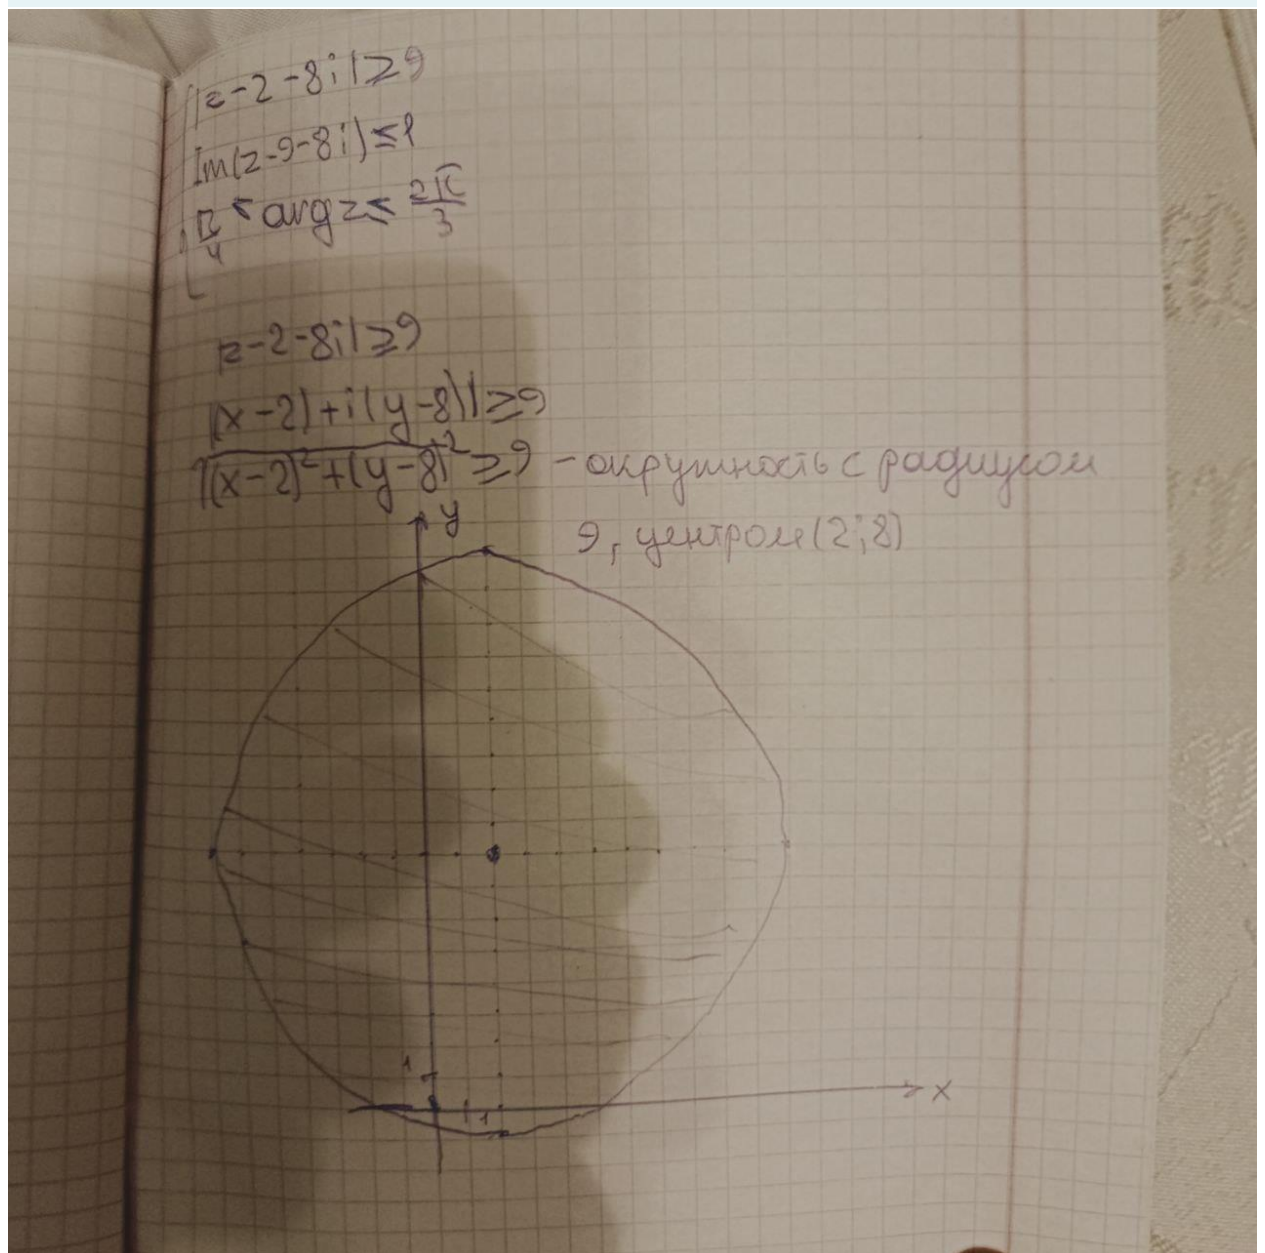 |z-2-8i|≥9
Im(z-9-8i)≤1
π/4 < arg z ≤ 2π/3
|z-2-8i|≥9
|(x-2)+i(y-8)|≥9
√((x-2)²+(y-8)²)≥9 – окружность с радиусом
9, центром (2;8)
y
1 1
1
x